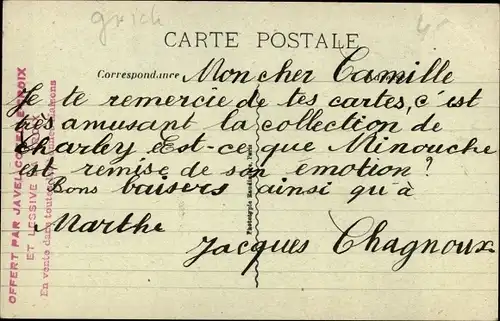 CARTE POSTALE
Correspondance
Mon cher Camille
Je te remercie de tes cartes, c'est
très amusant la collection de
Charley Est-ce que Minouche
est remise de son émotion?
Bons baisers ainsi qu'à
Marthe
Jacques Chagnoux
OFFERT PAR JAVEL CROIX
ET LESSIVE
En vente dans toutes